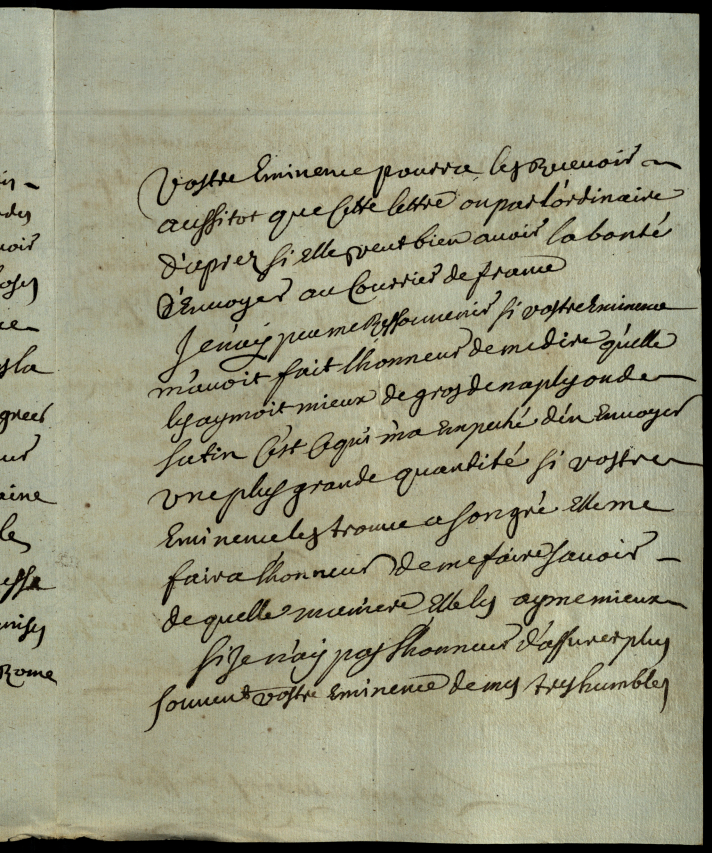 Vostre Eminence pourra les Recevoir
aussitot que cette lettre ou par lordinaire
d'apres si Elle veut bien avoir la bonté
d'Envoyer au Courrier de france
Je n'ay pu me Ressouvenir si vostre Eminence
m'avoit fait lhonneur de me dire qu'elle
les aymoit mieux de gros de naples ou de
satin C'est ce qui m'a Empeché d'en Envoyer
une plus grande quantité si vostre
Eminence les trouve a son gré Elle me
faira lhonneur de me faire savoir
de quelle maniere Elle les ayme mieux
si Je n'ay pas lhonneur d'assurer plus
souvent vostre Eminence de mes tres humbles
grees
aine
le
Rome